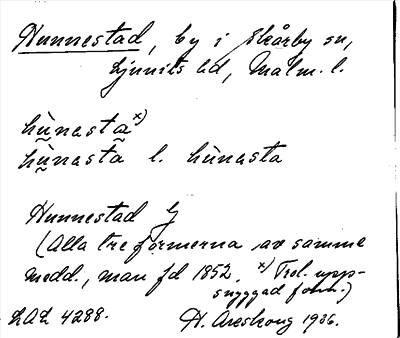 Hunnestad, by i Skårby sn,
Ljunits hd, Malm. l.
hùnesta x)
hùnasta l. hùnasta
Hunnestad G
(Alla tre formerna av samme
medd., man fd 1852. x) Trol. upp-
snyggad form.)
LAL 4288. H. Areskoug 1936.